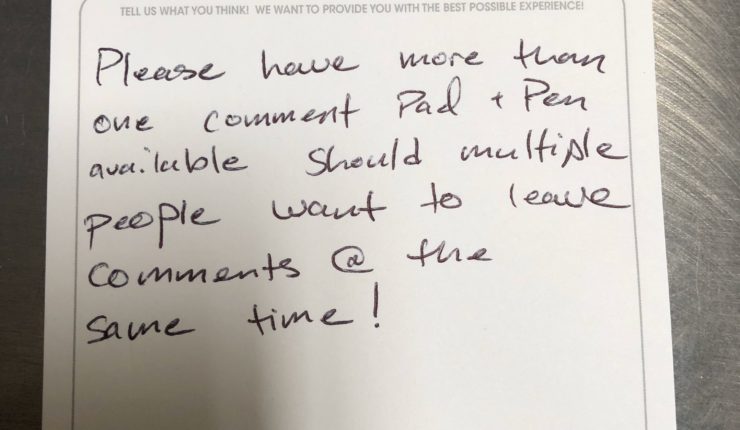 TELL US WHAT YOU THINK! WE WANT TO PROVIDE YOU WITH THE BEST POSSIBLE EXPERIENCE!
Please have more than
one comment Pad + Pen
available should multiple
people want to leave
comments @ the
same time!